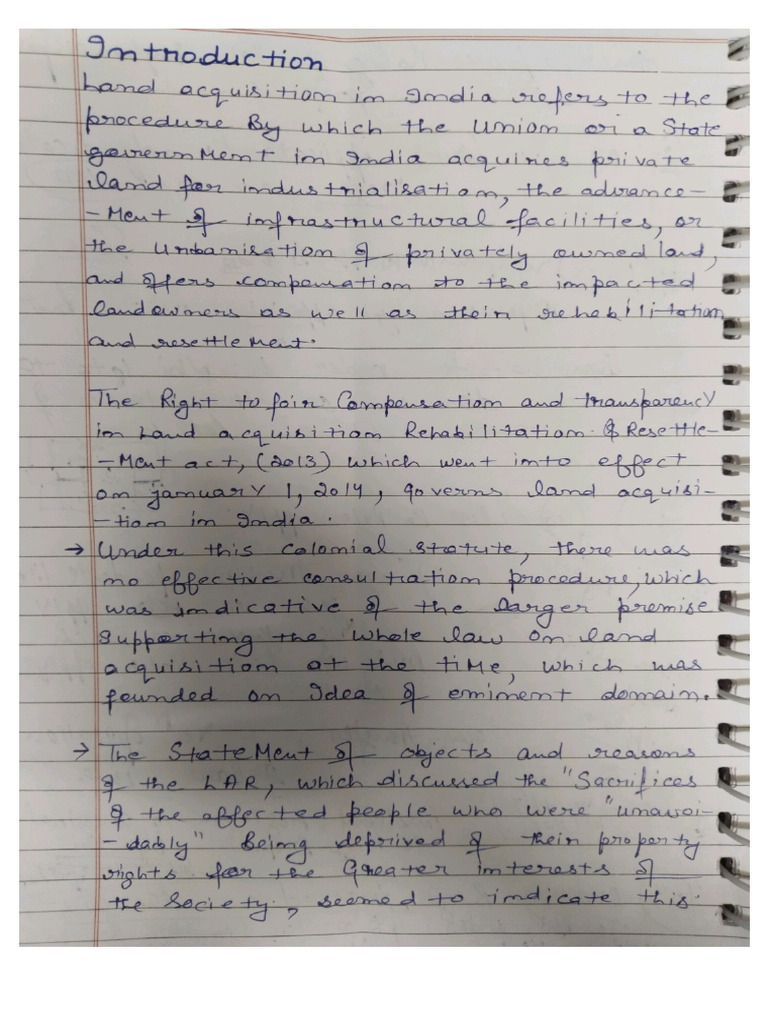 Introduction
Land acquisition in India refers to the
procedure By which the Union or a State
government in India acquires private
land for industrialisation, the advance-
-Ment of infrastructural facilities, or
the Urbanisation of privately owned land,
and offers compensation to the impacted
landowners as well as their rehabilitation
and resettlement.
The Right to fair Compensation and transparency
in Land acquisition Rehabilitation & Resettle-
-Ment act, (2013) which went into effect
on january 1, 2014, governs land acquisi-
-tion in India.
→ Under this colonial statute, there was
no effective consultration procedure, which
was indicative of the larger premise
supporting the whole law on land
acquisition at the tiMe, which was
founded on Idea of eminent domain.
→ The StateMent of objects and reasons
of the LAR, which discussed the "Sacrifices
of the affected people who were "unavoi-
-dably" Being deprived of their property
rights for the Greater interests of
the Society, seemed to indicate this.